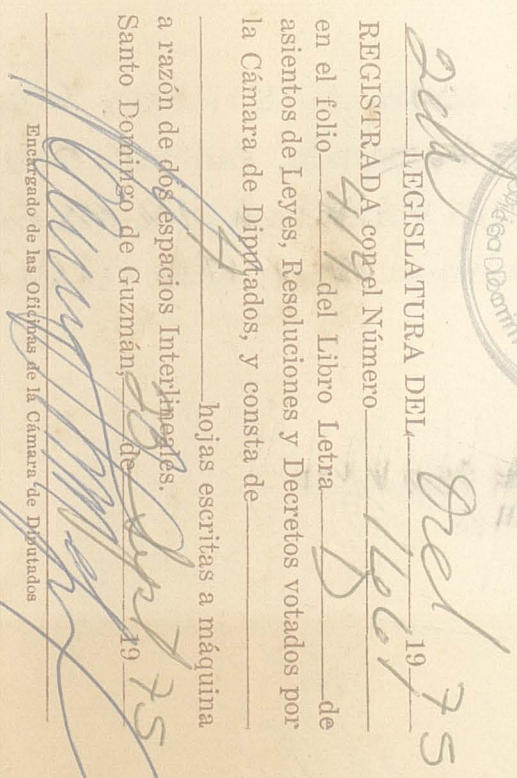 2da LEGISLATURA DEL Ord 1975
REGISTRADA con el Número 1461
en el folio 411 del Libro Letra D de
asientos de Leyes, Resoluciones y Decretos votados por
la Cámara de Diputados, y consta de
hojas escritas a máquina
a razón de dos espacios Interlineales.
Santo Domingo de Guzmán, de Sept 1975
Encargado de las Oficinas de la Cámara de Diputados